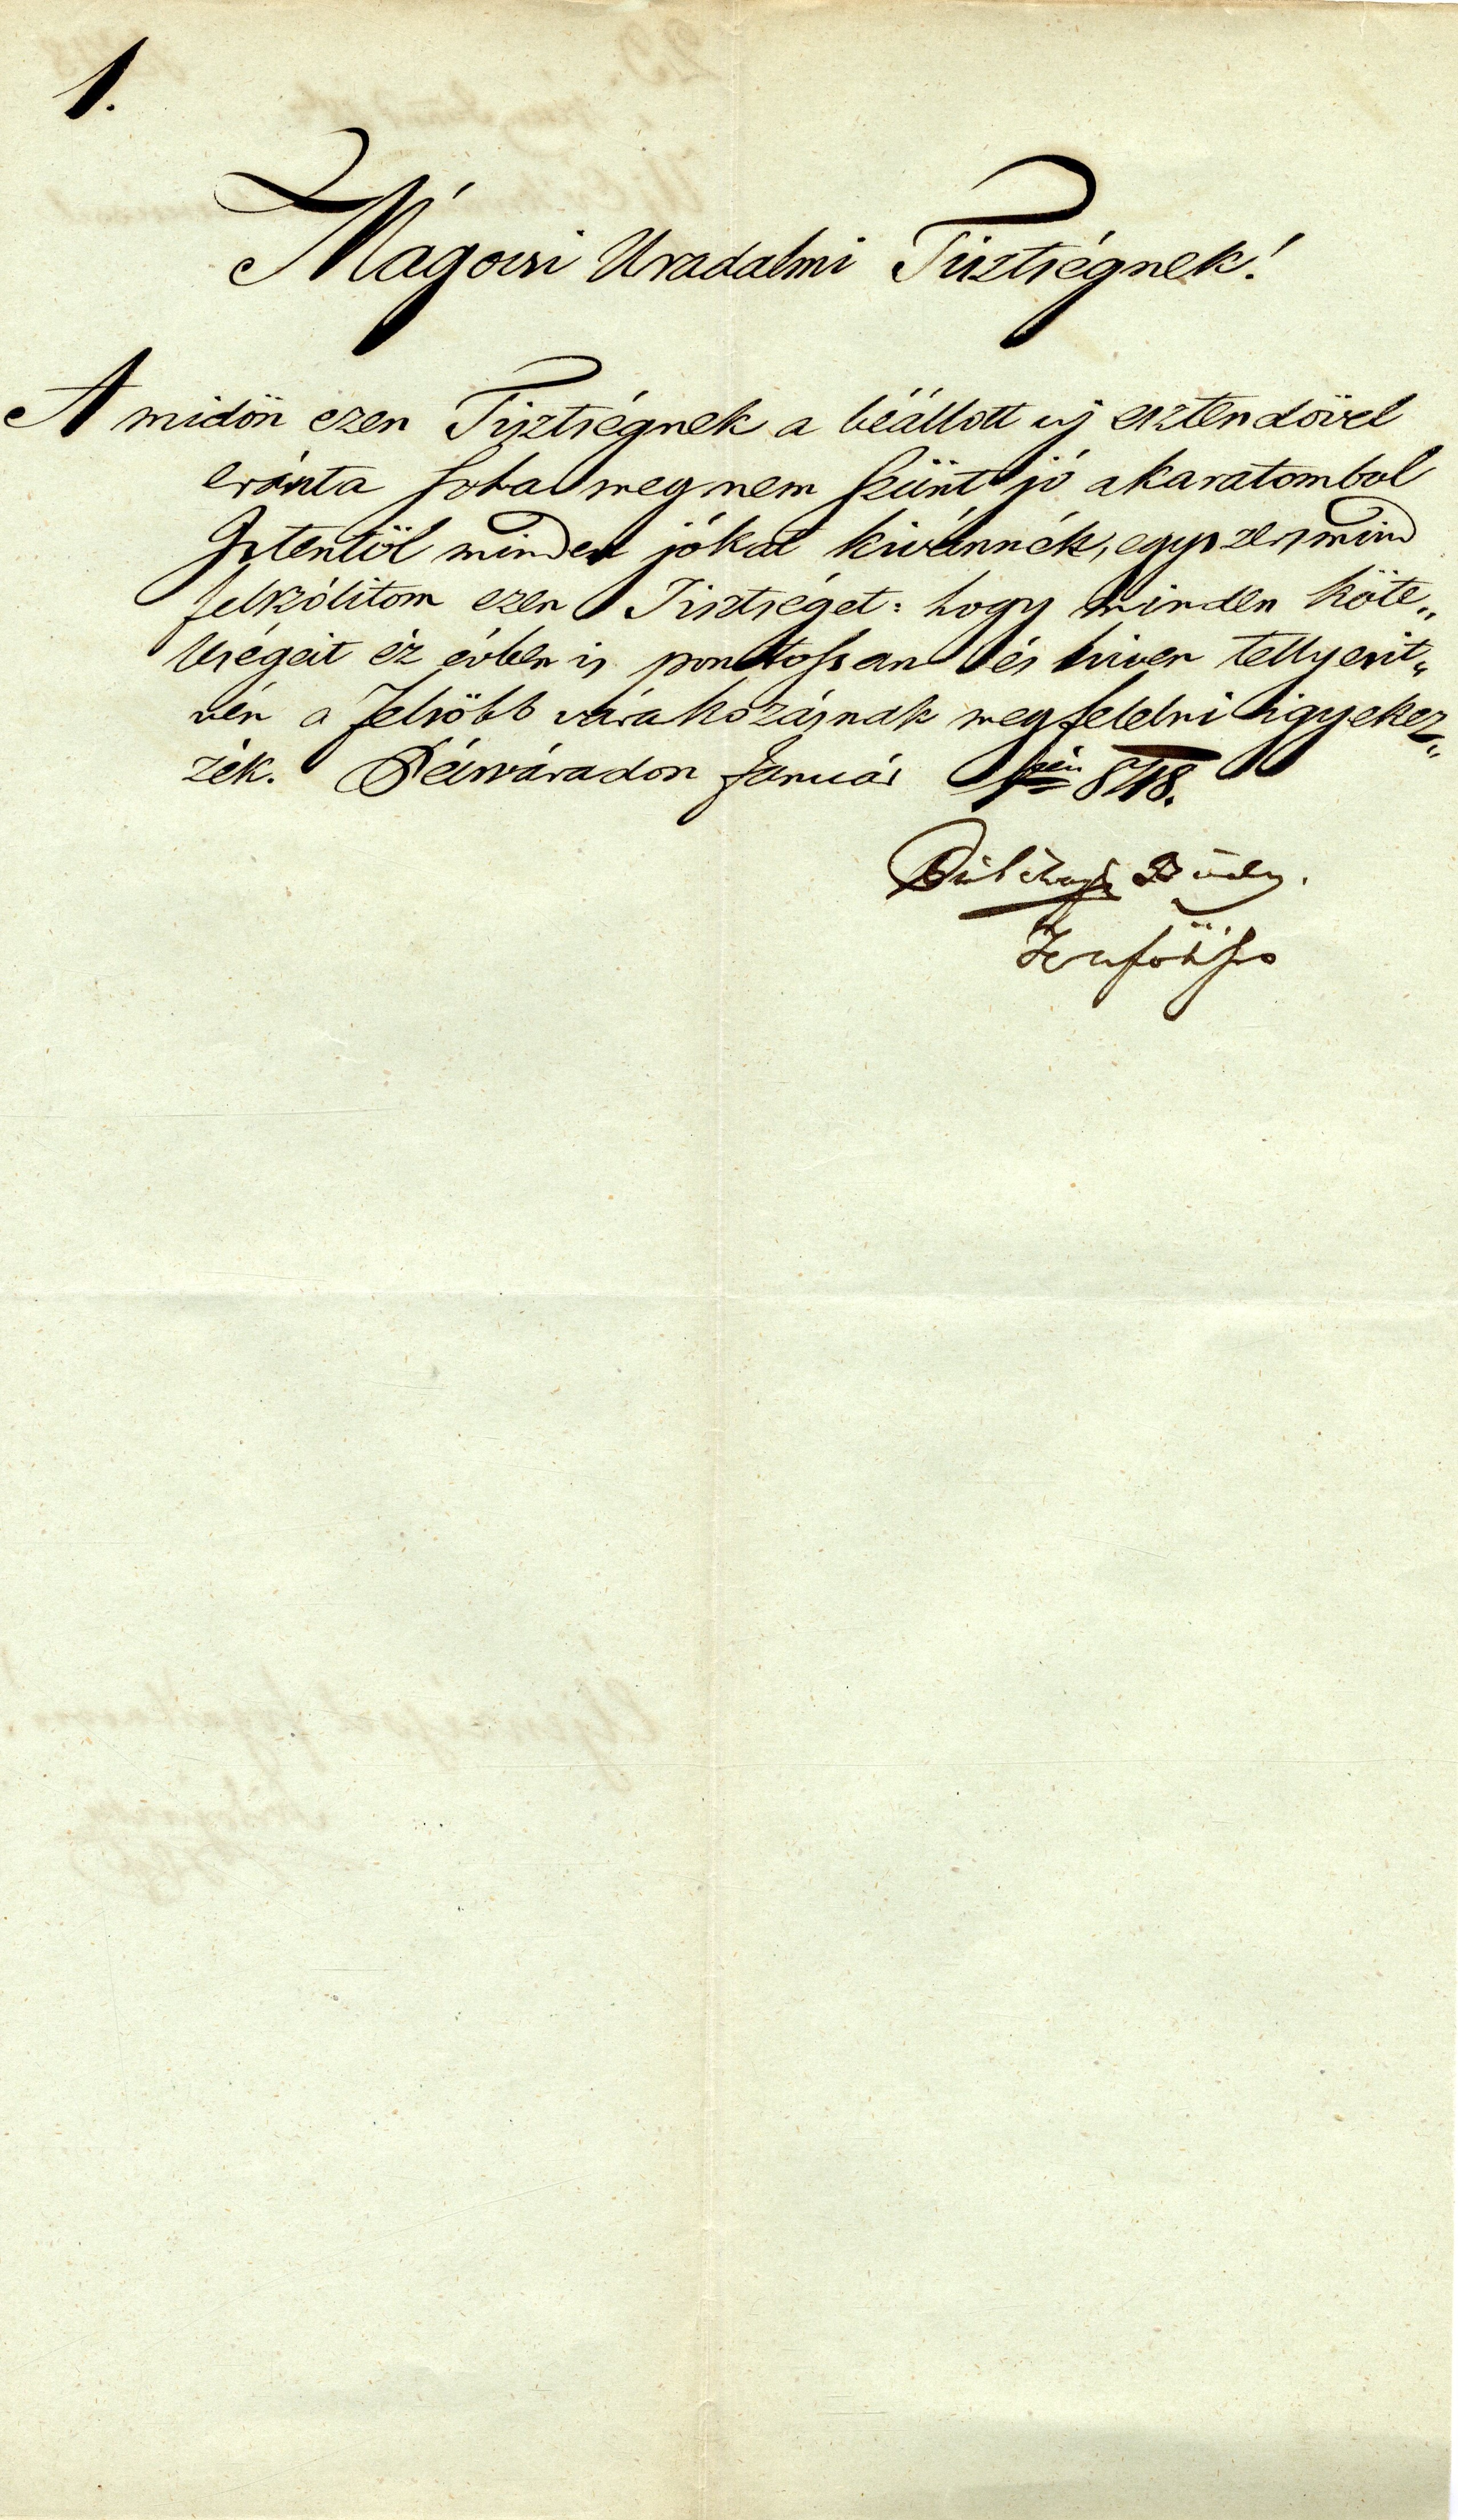 1.
Mágocsi Uradalmi Tisztségnek!
A midőn ezen Tisztségnek a béállott uj esztendővel
eránta soha meg nem szünt jó akaratombol
Istentöl minden jókat kivánnék, egyszersmind
felszólitom ezen Tisztséget: hogy minden köte„
lességeit éz évben is pontossan és hiven tellyesit„
vén a felsőbb várakozásnak megfelelni igyekez„
zék. Pécsváradon Január 1sőjén 848.